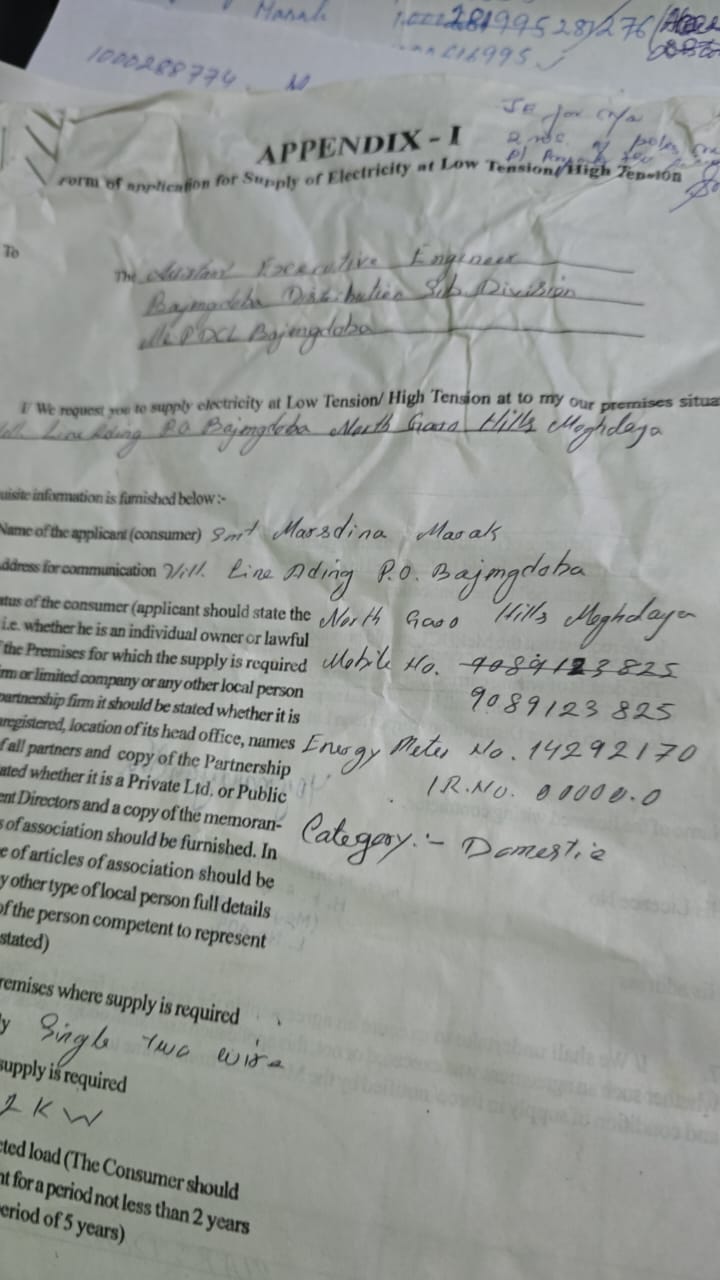 Marak
1000288774
APPENDIX - I
Form of application for Supply of Electricity at Low Tension/High Tension
JE for
2 nos. of poles
To
The Assistant Executive Engineer
Bajengdoba Distribution Sub Division
MePDCL Bajengdoba
I/ We request you to supply electricity at Low Tension/ High Tension at to my our premises situa
Line Ading P.O Bajengdoba North Garo Hills Meghalaya
uisite information is furnished below :-
Name of the applicant (consumer) Smt Marsdina Marak
ddress for communication Vill. Line Ading P.O. Bajengdoba
atus of the consumer (applicant should state the North Garo Hills Meghalaya
i.e. whether he is an individual owner or lawful
the Premises for which the supply is required Mobile No. 9089123825
irm or limited company or any other local person
partnership firm it should be stated whether it is 9089123825
registered, location of its head office, names
f all partners and copy of the Partnership Energy Meter No. 14292170
ated whether it is a Private Ltd. or Public
ent Directors and a copy of the memoran- I.R.NO. 00000.0
s of association should be furnished. In Category:- Domestic
e of articles of association should be
y other type of local person full details
of the person competent to represent
stated)
remises where supply is required
y Single two wire
supply is required
2 KW
cted load (The Consumer should
nt for a period not less than 2 years
eriod of 5 years)